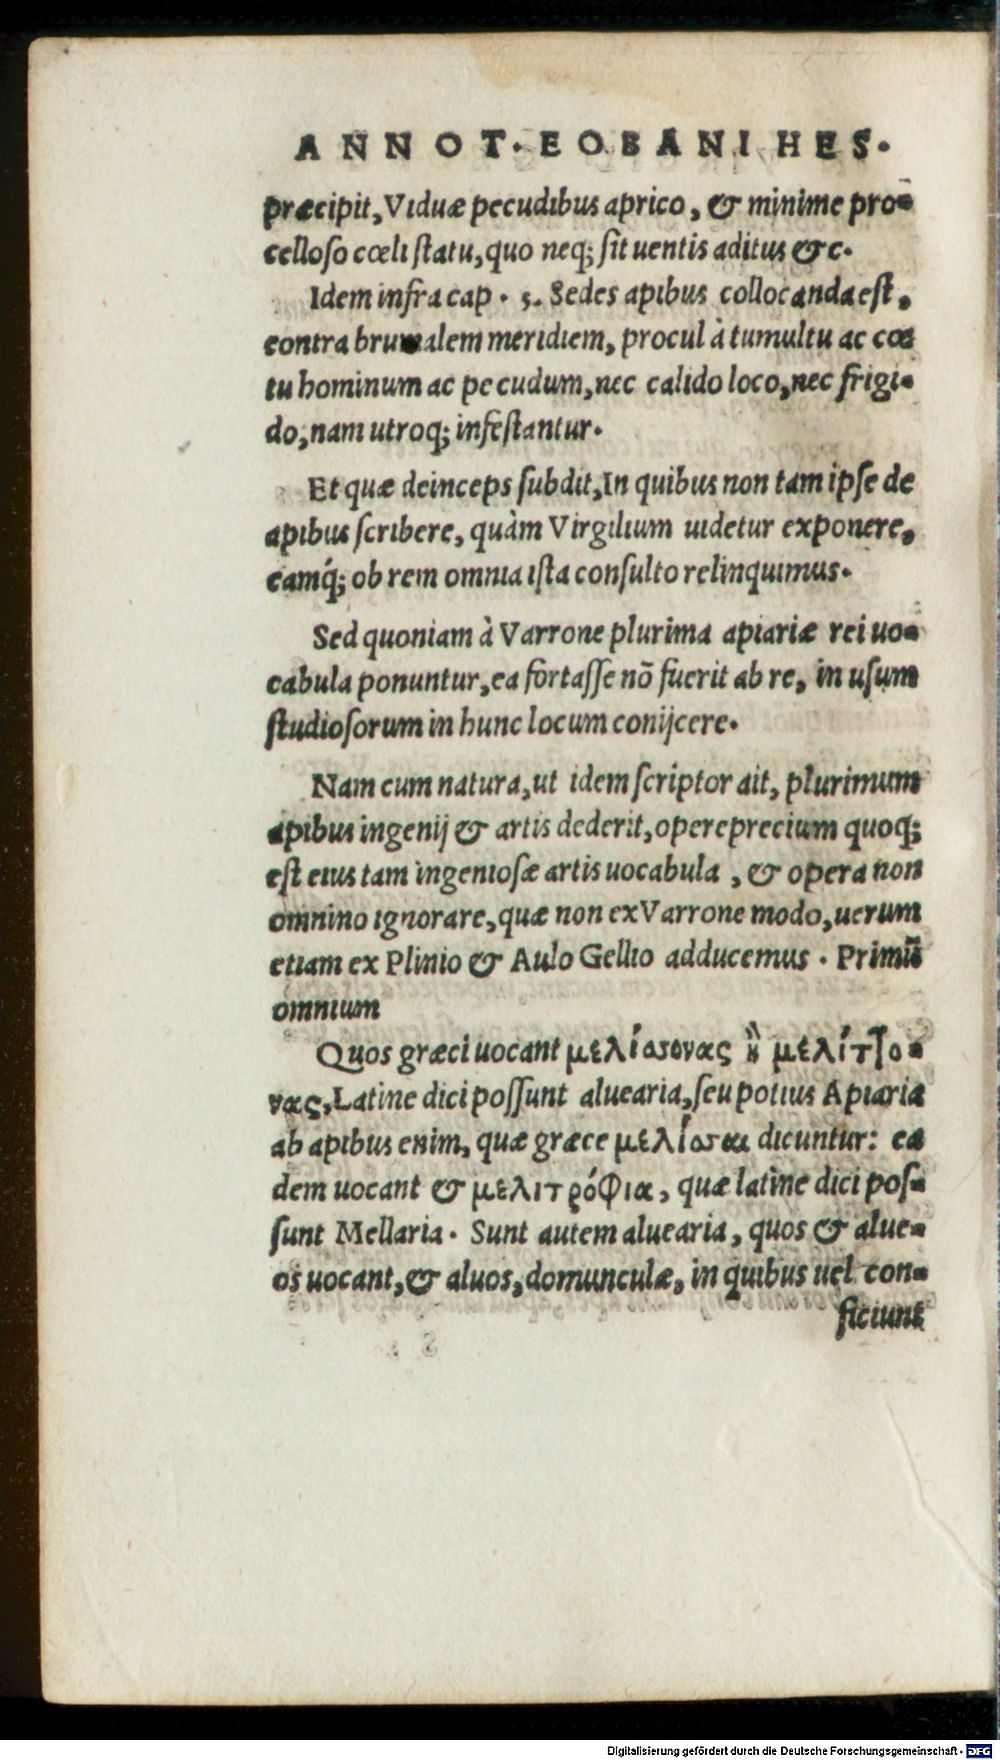 ANNOT. EOBANI HES.
præcipit, Viduæ pecudibus aprico, & minime pro-
celloso cœli statu, quo neq; sit uentis aditus &c.
Idem infra cap. 5. Sedes apibus collocanda est,
contra brumalem meridiem, procul à tumultu ac cœ
tu hominum ac pecudum, nec calido loco, nec frigi-
do, nam utroq; infestantur.
Et quæ deinceps subdit, In quibus non tam ipse de
apibus scribere, quàm Virgilium uidetur exponere,
eamq́; ob rem omnia ista consulto relinquimus.
Sed quoniam à Varrone plurima apiariæ rei uo-
cabula ponuntur, ea fortasse nō fuerit ab re, in usum
studiosorum in hunc locum conijcere.
Nam cum natura, ut idem scriptor ait, plurimum
apibus ingenij & artis dederit, opereprecium quoq;
est eius tam ingeniosæ artis uocabula, & opera non
omnino ignorare, quæ non ex Varrone modo, uerum
etiam ex Plinio & Aulo Gellio adducemus. Primū
omnium
Quos græci uocant μελίσσονας ἢ μελίττο-
νας, Latine dici possunt aluearia, seu potius Apiaria
ab apibus enim, quæ græce μελίσσαι dicuntur: ea
dem uocant & μελιτρόφια, quæ latine dici pos-
sunt Mellaria. Sunt autem aluearia, quos & alue-
os uocant, & aluos, domunculæ, in quibus uel con-
ficiunt
Digitalisierung gefördert durch die Deutsche Forschungsgemeinschaft - DFG